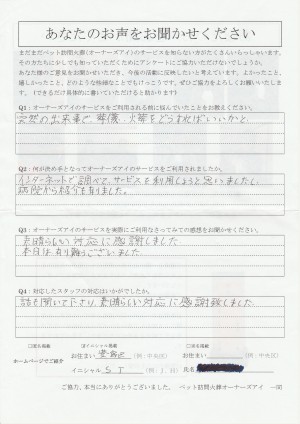 あなたのお声をお聞かせください
まだまだペット訪問火葬(オーナーズアイ)のサービスを知らない方がたくさんいらっしゃいます。
その方たちに少しでも知っていただくためにアンケートにご協力いただけないでしょうか。
あなた様のご意見をお聞かせいただき、今後の活動に反映したいと考えています。よかったこと、
嬉しかったこと、どのような些細なことでもけっこうです。ぜひご協力をよろしくお願いいたしま
す。(できるだけ具体的に書いていただけると助かります)
Q1：オーナーズアイのサービスをご利用される前に悩んでいたことをお教えください。
突然の出来事で 葬儀、火葬をどうすればいいかと、
Q2：何が決め手となってオーナーズアイのサービスをご利用されましたか。
インターネットで調べて、サービスを利用しようと思いましたし、
病院から紹介も有りました。
Q3：オーナーズアイのサービスを実際にご利用なさってみての感想をお聞かせください。
素晴らしい対応に感謝しました
本日は有り難うございました。
Q4：対応したスタッフの対応はいかがでしたか。
話も聞いて下さり、素晴らしい対応に感謝致しました。
イニシャル掲載
ホームページでご紹介
お住まい (例：中央区)
お住まい (例：中央区)
イニシャル S T
氏名
ご協力、本当にありがとうございました。 ペット訪問火葬オーナーズアイ 一同